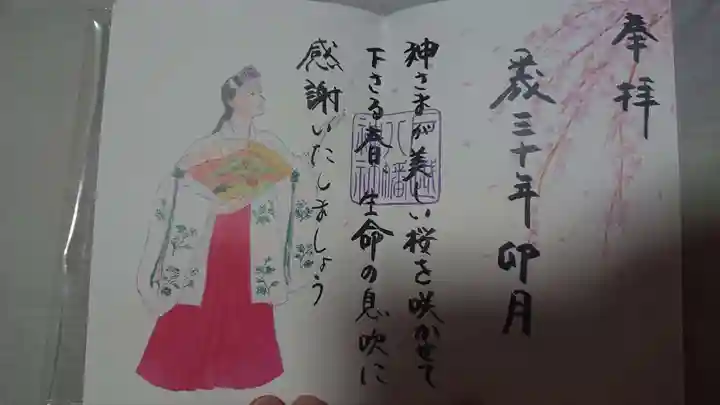 奉拝
平成三十年卯月
神さまが美しい桜を咲かせて
下さる春 生命の息吹に
感謝いたしましょう
八幡
神社